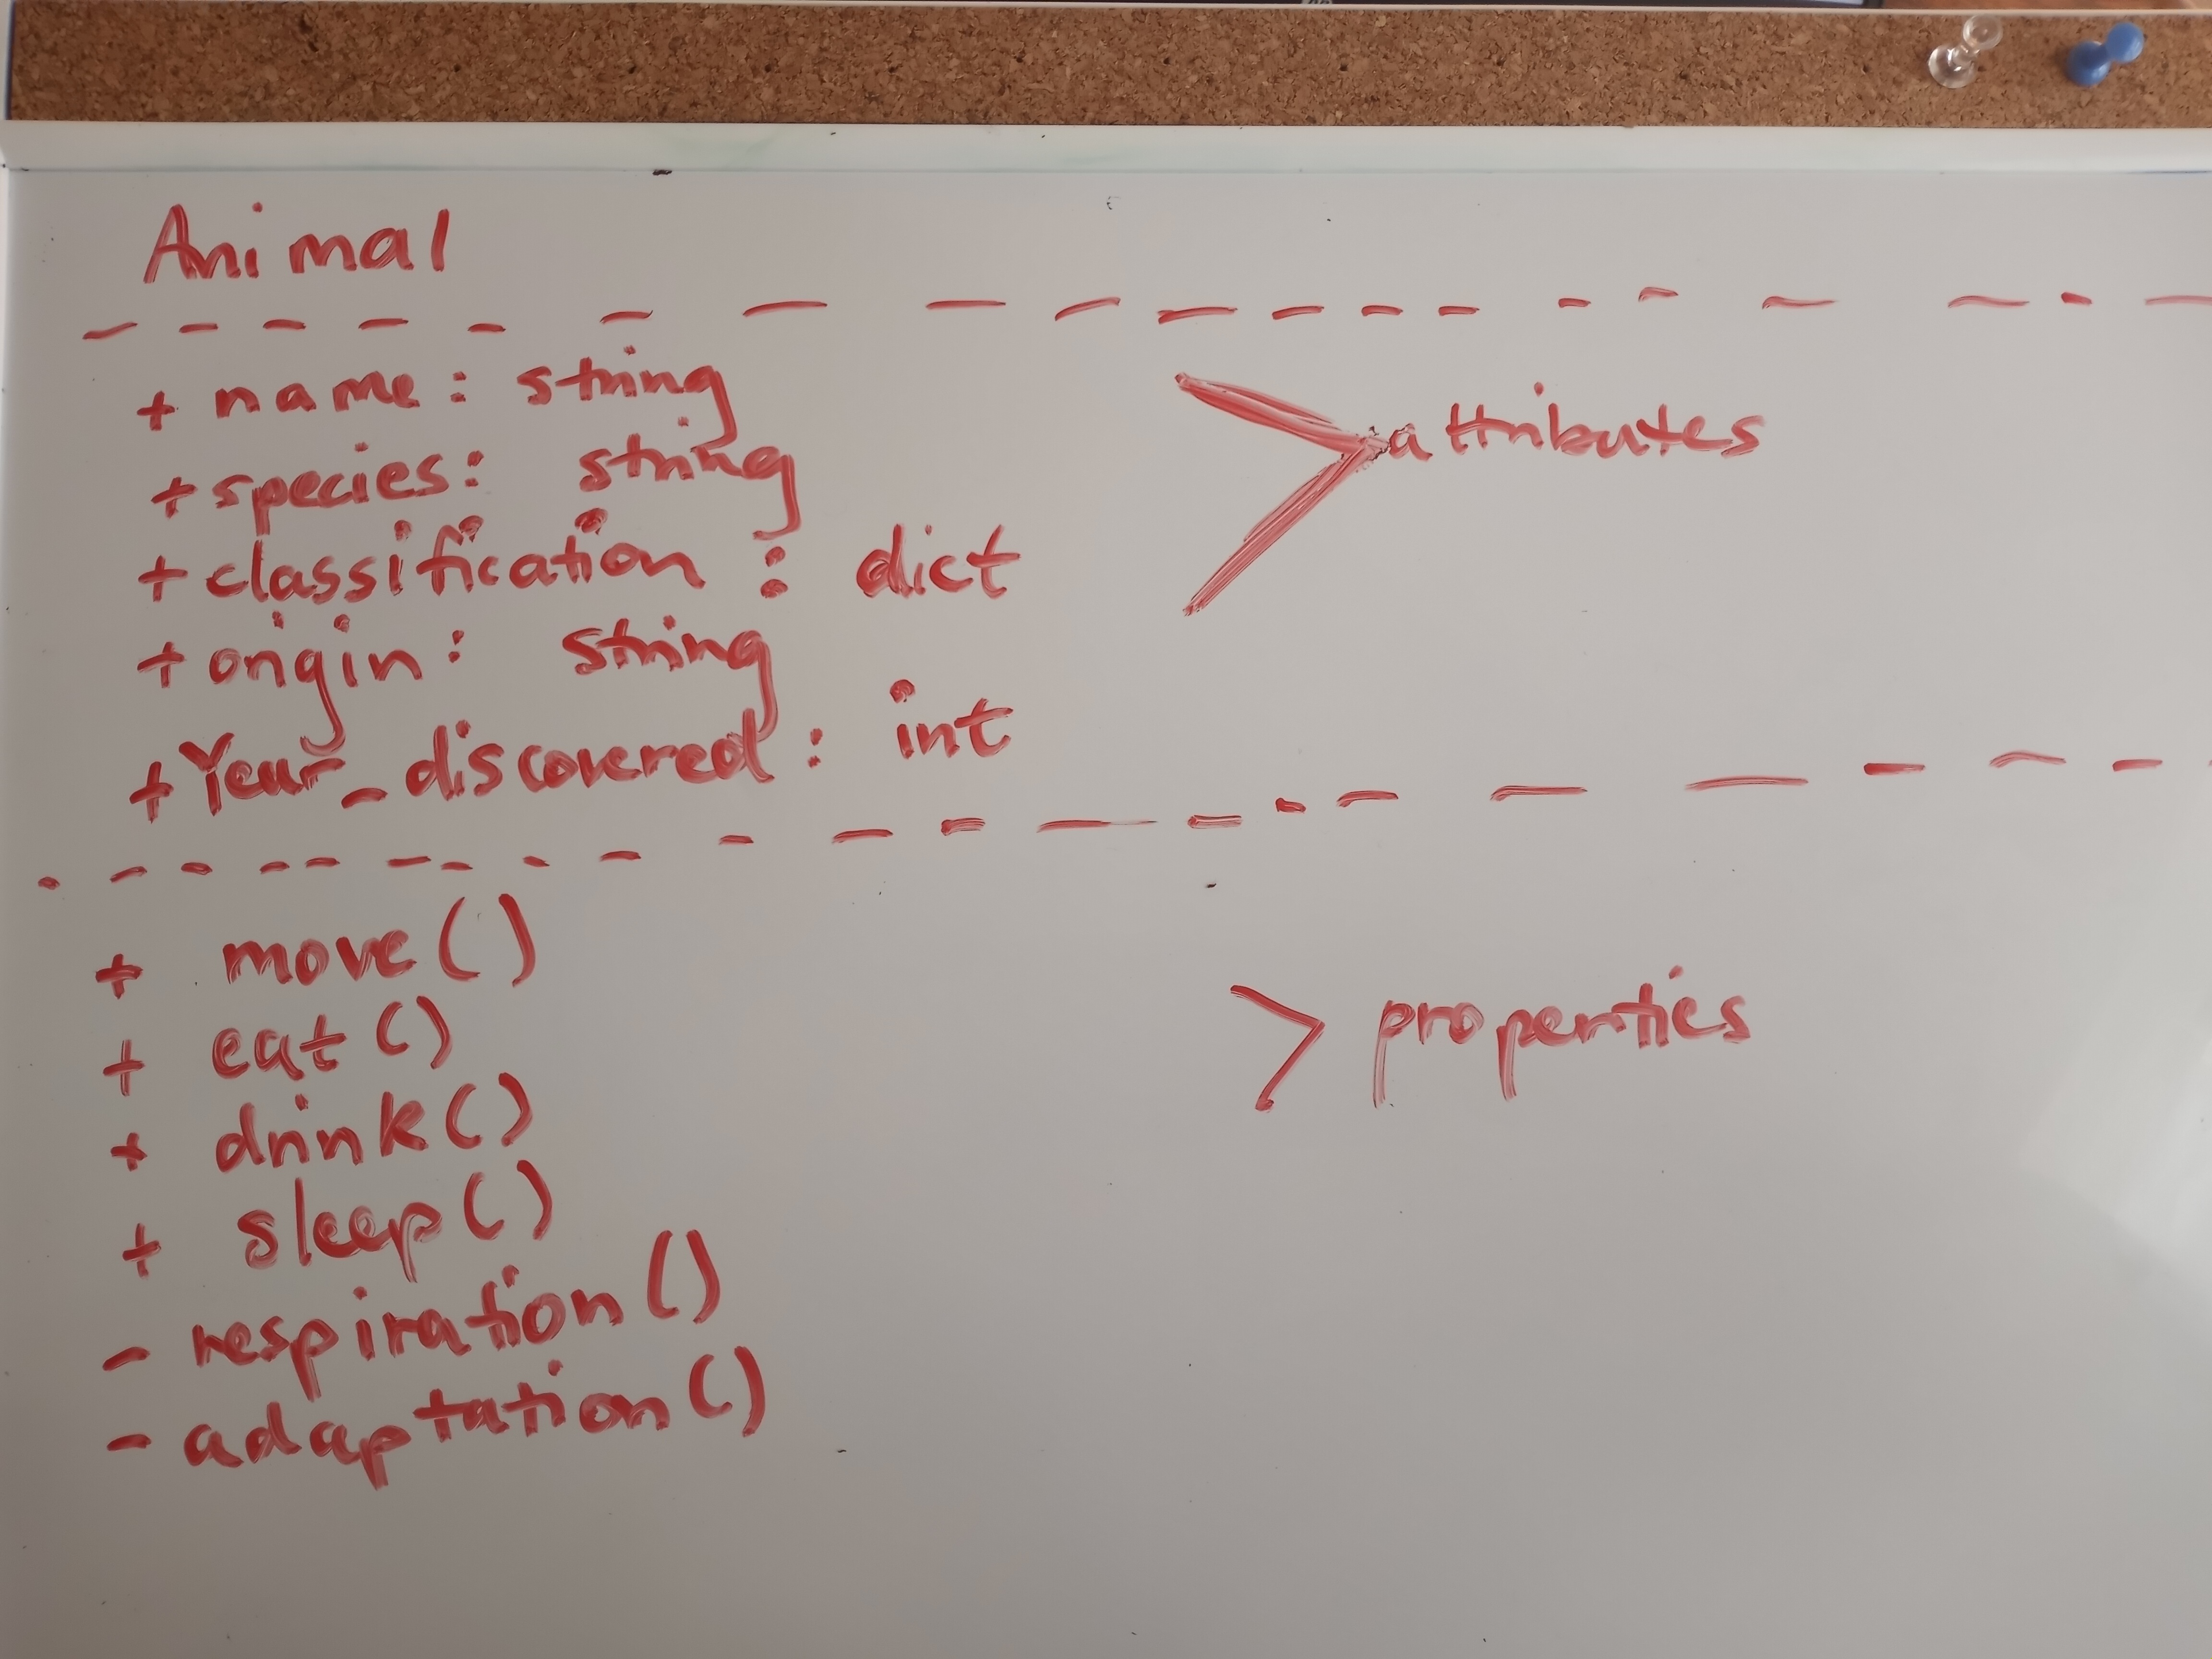 Animal
+ name: string
+ species: string
+ classification: dict
+ origin: string
+ Year_discovered: int
attributes
+ move()
+ eat()
+ drink()
+ sleep()
- respiration()
- adaptation()
properties